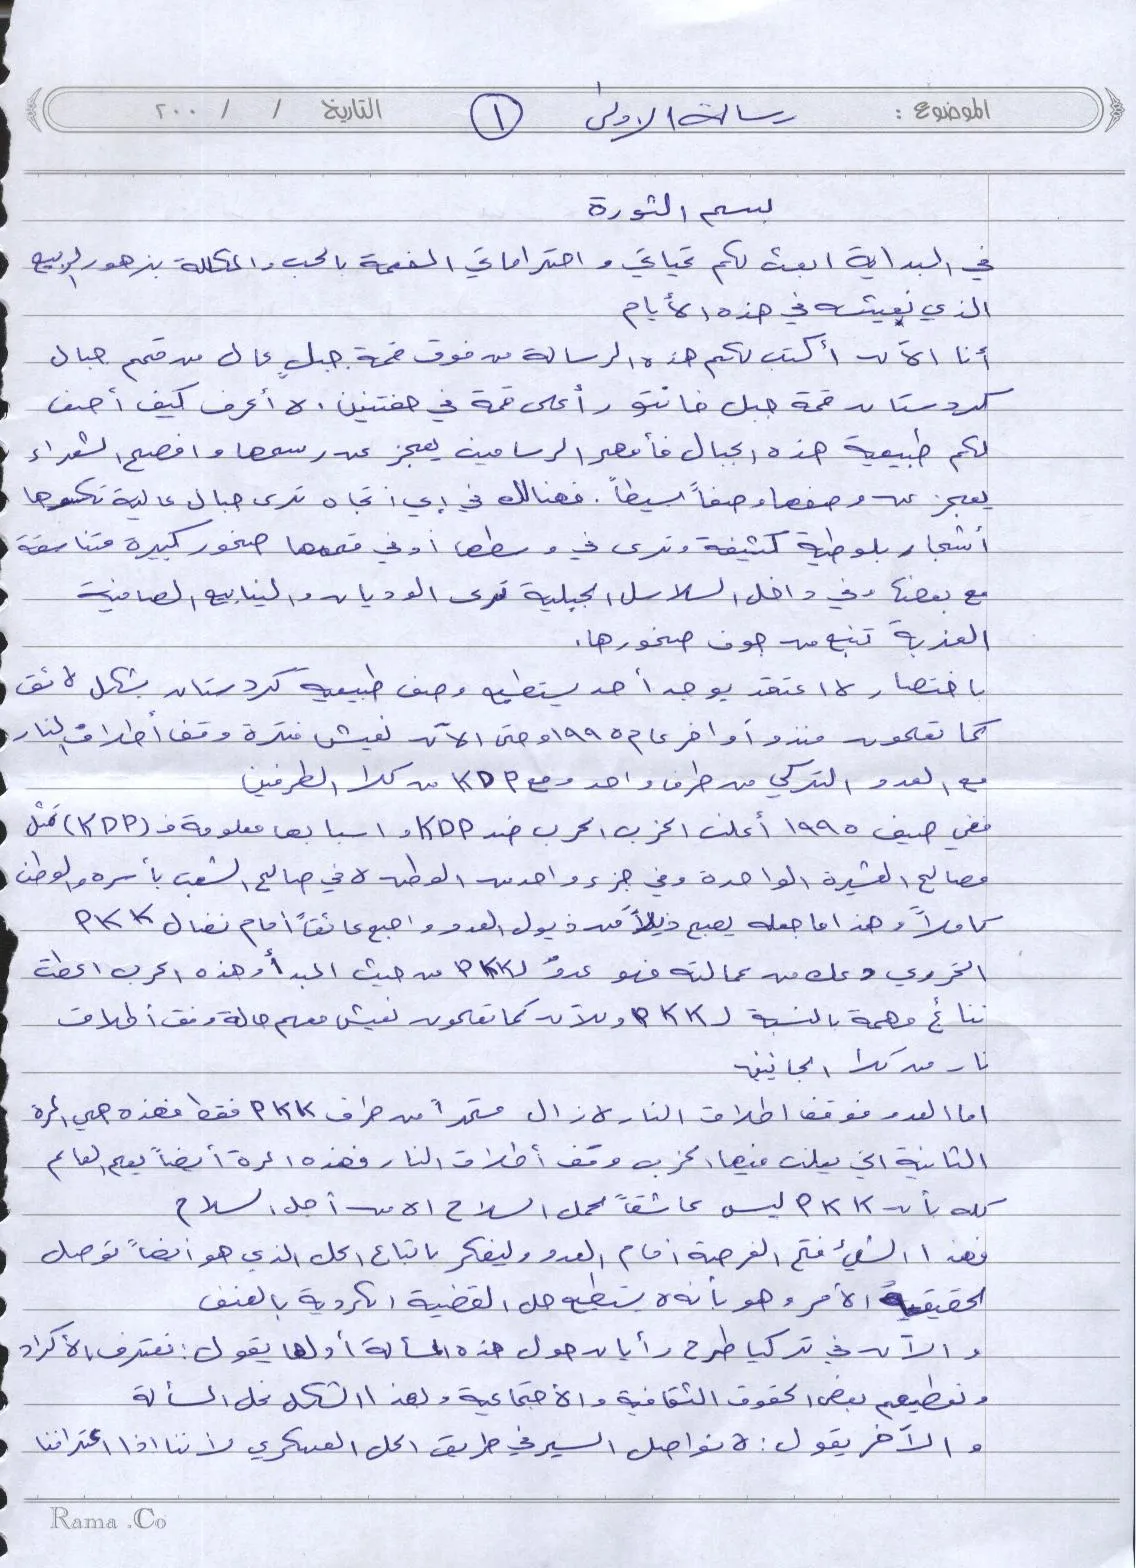 الموضوع : رسالة الاولى ١ التاريخ / / ٢٠٠
بسم الثورة
في البداية ابعث لكم تحياتي و احتراماتي المفعمة بالحب والمكللة بزهور الربيع
الذي نعيشه في هذه الأيام
أنا الآن أكتب لكم هذه الرسالة من فوق قمة جبلٍ عال من قمم جبال
كردستان قمة جبل خانتور أعلى قمة في حفتنين لا أعرف كيف أصف
لكم طبيعية هذه الجبال فأمهر الرسامين يعجز عن رسمها وافصح الشعراء
يعجز عن وصفها وصفاً بسيطاً. فهنالك في إي اتجاه ترى جبال عالية تكسوها
أشجار بلوطية كثيفة وترى في وسطها أو في قممها صخور كبيرة متناسقة
مع بعضها وفي داخل السلاسل الجبلية ترى الوديان والينابيع الصافية
العذبة تنبع من جوف صخورها.
باختصار لا اعتقد يوجد أحد يستطيع وصف طبيعية كردستان بشكل لائق
كما تعلمون منذو أواخر عام ١٩٩٥ وحتى الآن نعيش فترة وقف أطلاق النار
مع العدو التركي من طرف واحد ومع KDP من كلا الطرفين
ففي صيف ١٩٩٥ أعلن الحزب الحرب ضد KDP واسبابها معلومة فـ (KDP) تمثل
مصالح العشيرة الواحدة وفي جزء واحد من الوطن لا في صالح الشعب بأسره والوطن
كاملاً وهذا ما جعله يصبح ذيلاً من ذيول العدو واصبح عائقاً أمام نضال PKK
الثوري دعك من عمالته فهو عدوٌ لـ PKK من حيث المبدأ وهذه الحرب اعطت
نتائج مهمة بالنسبة لـ PKK وللآن كما تعلمون نعيش معهم حالة وقف أطلاق
نار من كلا الجانبين
اما العدو فوقف اطلاق النار لازال مستمراً من طرف PKK فقط فهذه هي المرة
الثانية التي يعلن فيها الحزب وقف أطلاق النار فهذه المرة أيضاً يعلم العالم
كله بأن PKK ليس عاشقاً لحمل السلاح الا من أجل السلاح
فهذا الشيئ فتح الفرصة أمام العدو وليفكر باتباع الحل الذي هو أيضاً توصل
لحقيقية الأمر وهو بأنه لا يستطيع حل القضية الكردية بالعنف
والآن في تركيا طرح رأيان حول هذه المسألة أولها يقول: نعترف بالأكراد
ونعطيهم بعض الحقوق الثقافية والأجتماعية وبهذا الشكل نحل المسألة
والآخر يقول: لا نواصل السير في طريق الحل العسكري لاننا اذا اعترفنا
Rama .Co